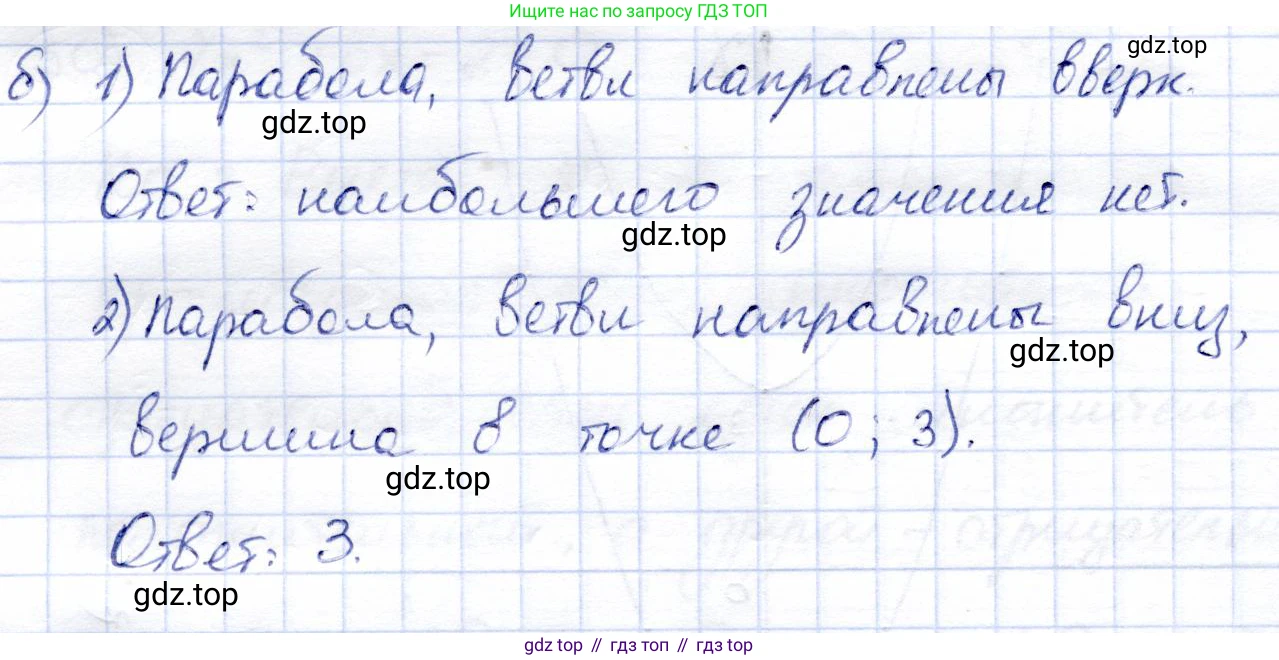 Ищите нас по запросу ГДЗ ТОП
gdz.top
б) 1) Парабола, ветви направлены вверх.
gdz.top
Ответ: наибольшего значения нет.
gdz.top
2) Парабола, ветви направлены вниз,
gdz.top
вершина в точке (0; 3).
gdz.top
Ответ: 3.
gdz.top
gdz top // гдз топ // gdz.top